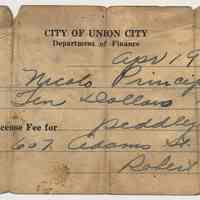 CITY OF UNION CITY
Department of Finance
Apr 19
Nicolo Princip
Ten Dollars
cense Fee for peddly
607 Adams St.
Robert